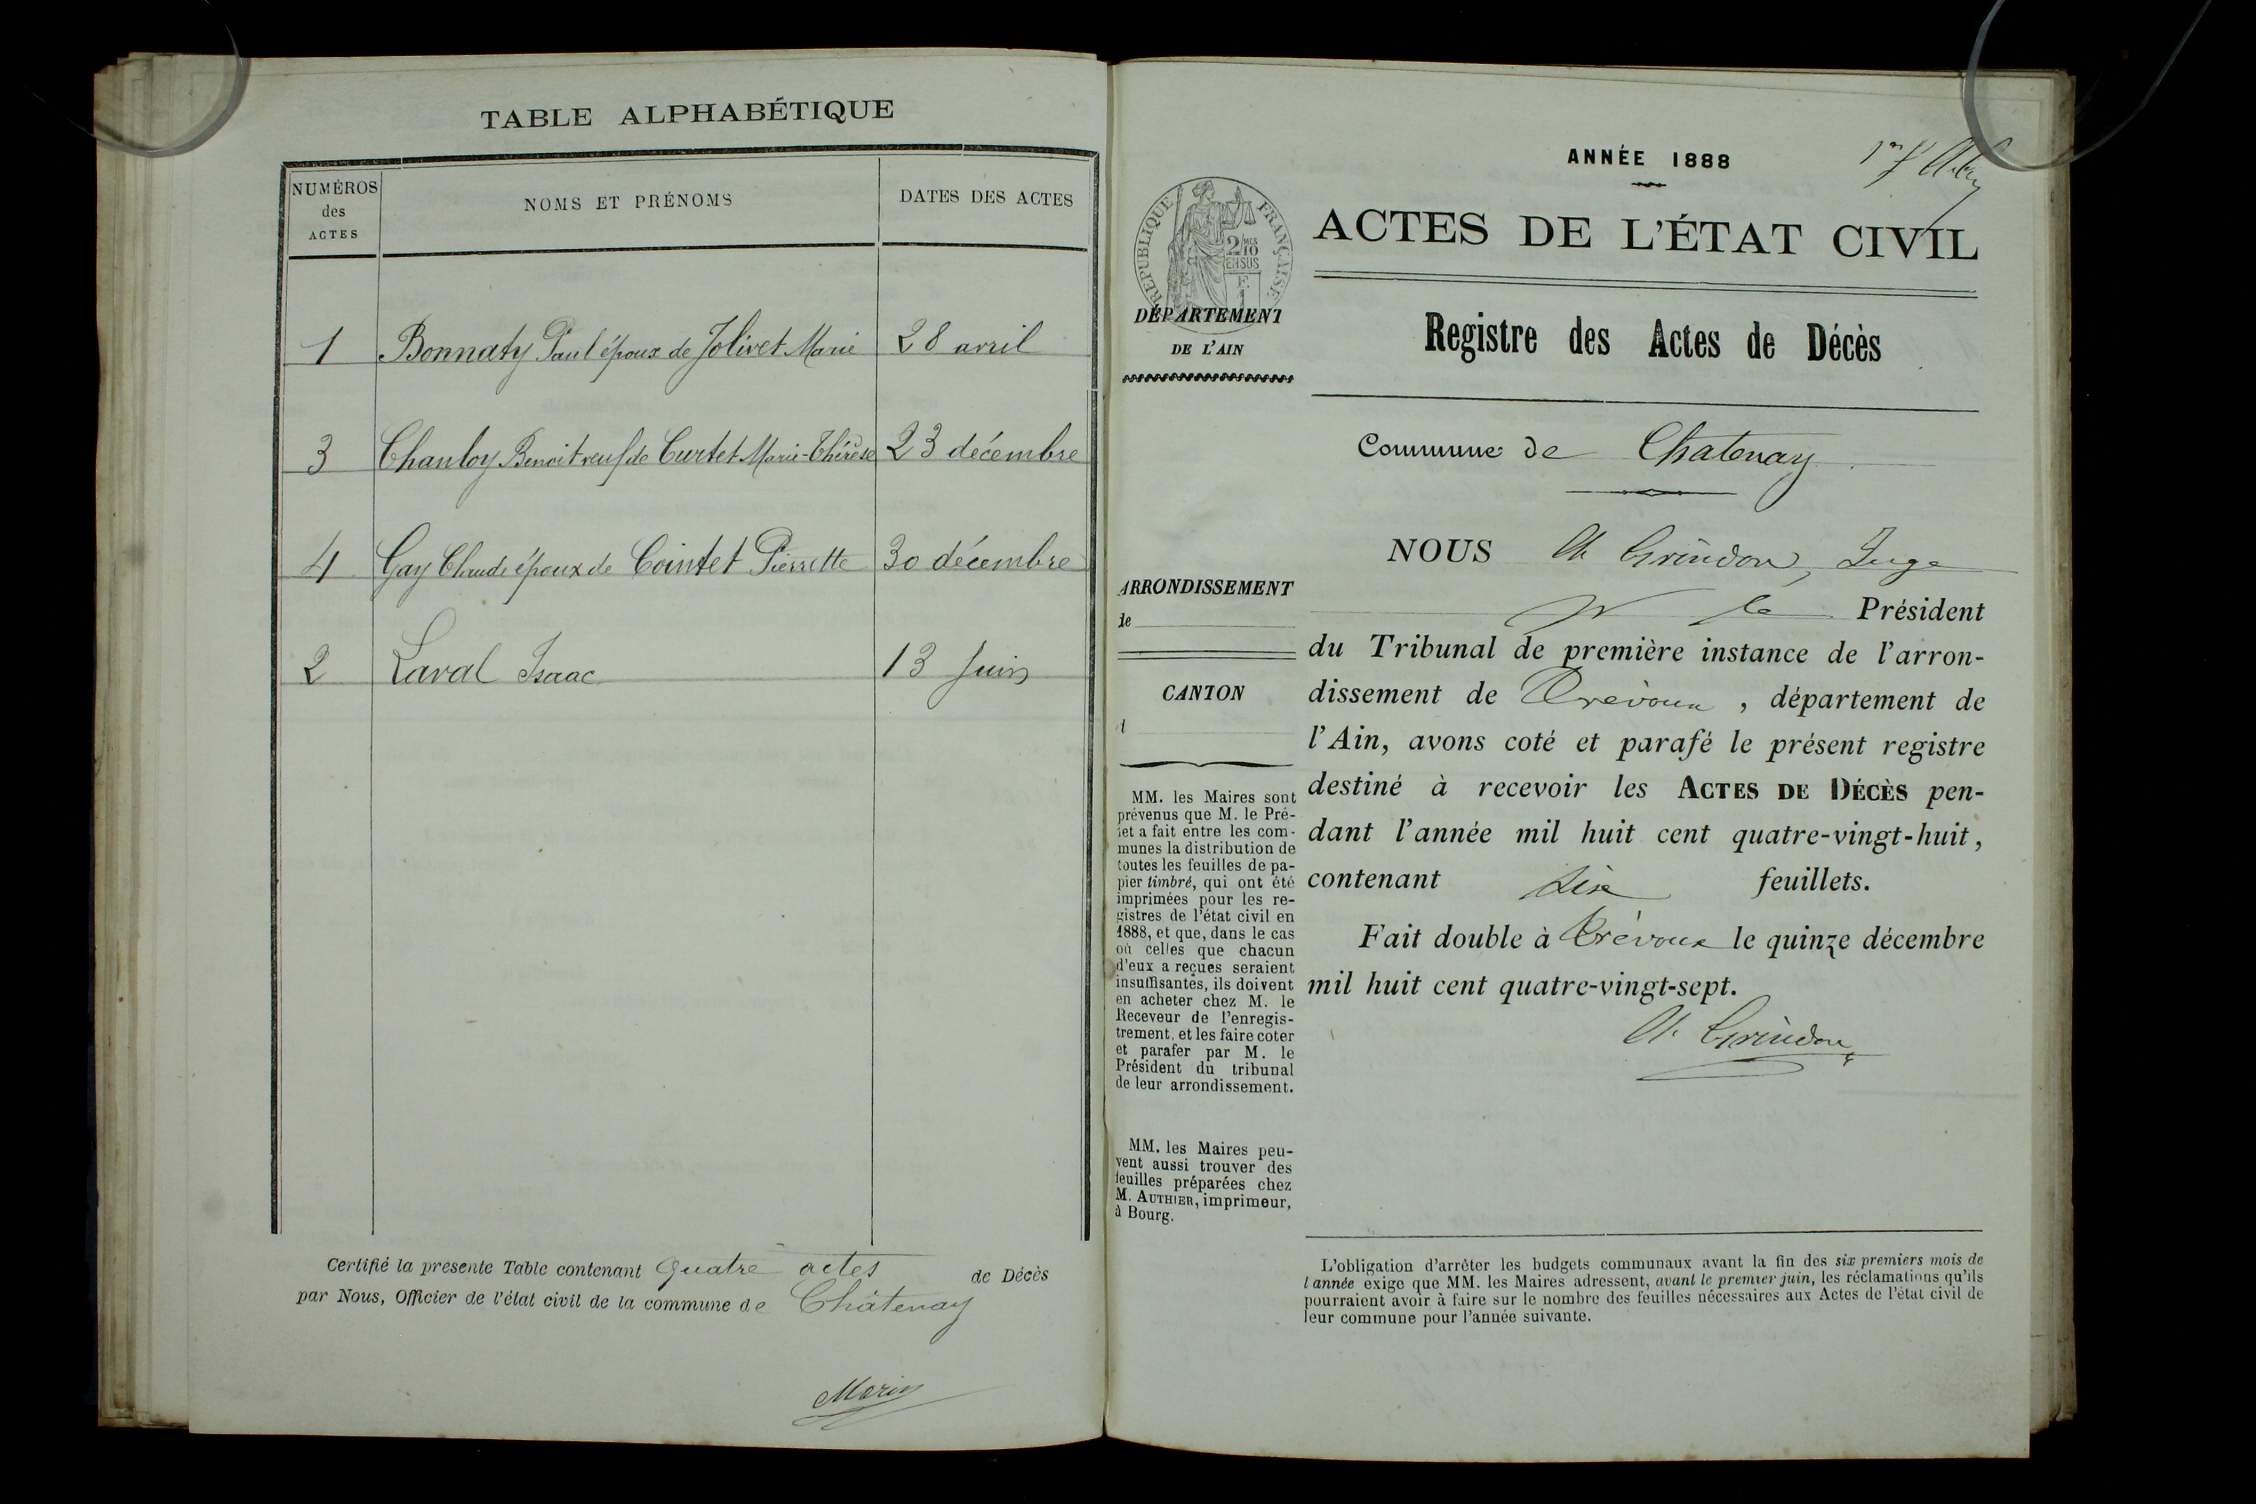 TABLE ALPHABÉTIQUE
NUMÉROS
des
ACTES
NOMS ET PRÉNOMS
DATES DES ACTES
1 Bonnaty Paul époux de Jolivet Marie 28 avril
3 Chanloy Benoit veuf de Curtet Marie-Thérèse 23 décembre
4 Gay Claude époux de Cointet Pierrette 30 décembre
2 Laval Isaac 13 Juin
Certifié la presente Table contenant quatre actes de Décès
par Nous, Officier de l'état civil de la commune de Châtenay
Morin
ANNÉE 1888
ACTES DE L'ÉTAT CIVIL
RÉPUBLIQUE FRANÇAISE
2/10
EN SUS
DÉPARTEMENT
DE L'AIN
Registre des Actes de Décès
Commune de Chatenay
ARRONDISSEMENT
de
CANTON
d
MM. les Maires sont
prévenus que M. le Pré-
fet a fait entre les com-
munes la distribution de
toutes les feuilles de pa-
pier timbré, qui ont été
imprimées pour les re-
gistres de l'état civil en
1888, et que, dans le cas
où celles que chacun
d'eux a reçues seraient
insuffisantes, ils doivent
en acheter chez M. le
Receveur de l'enregis-
trement, et les faire coter
et parafer par M. le
Président du tribunal
de leur arrondissement.
MM. les Maires peu-
vent aussi trouver des
feuilles préparées chez
M. AUTHIER, imprimeur,
à Bourg.
NOUS Ch Grindon, Juge
pr le Président
du Tribunal de première instance de l'arron-
dissement de Trévoux, département de
l'Ain, avons coté et parafé le présent registre
destiné à recevoir les ACTES DE DÉCÈS pen-
dant l'année mil huit cent quatre-vingt-huit,
contenant six feuillets.
Fait double à Trévoux le quinze décembre
mil huit cent quatre-vingt-sept.
Ch. Grindon
L'obligation d'arrêter les budgets communaux avant la fin des six premiers mois de
l'année exige que MM. les Maires adressent, avant le premier juin, les réclamations qu'ils
pourraient avoir à faire sur le nombre des feuilles nécessaires aux Actes de l'état civil de
leur commune pour l'année suivante.